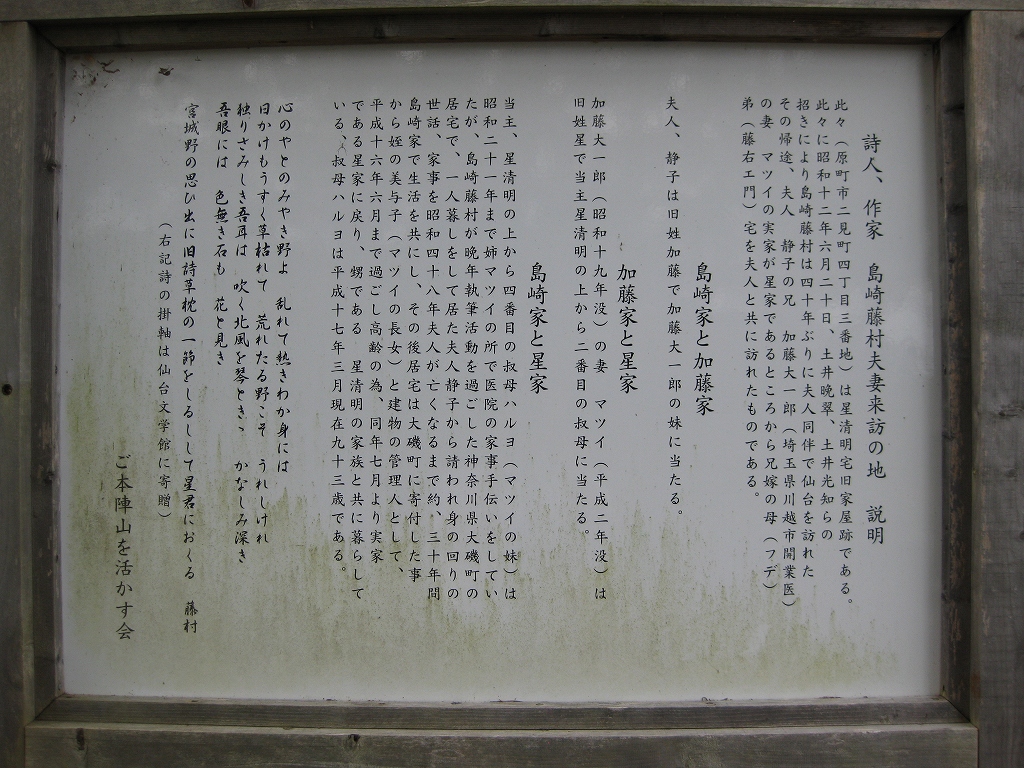 詩人、作家　島崎藤村夫妻来訪の地　説明
此々（原町市二見町四丁目三番地）は星清明宅旧家屋跡である。
此々に昭和十二年六月二十日、土井晩翠、土井光知らの
招きにより島崎藤村は四十年ぶりに夫人同伴で仙台を訪れた
その帰途、夫人　静子の兄　加藤大一郎（埼玉県川越市開業医）
の妻　マツイの実家が星家であるところから兄嫁の母（フデ）
弟（藤右エ門）宅を夫人と共に訪れたものである。
島崎家と加藤家
夫人、静子は旧姓加藤で加藤大一郎の妹に当たる。
加藤家と星家
加藤大一郎（昭和十九年没）の妻　マツイ（平成二年没）は
旧姓星で当主星清明の上から二番目の叔母に当たる。
島崎家と星家
当主、星清明の上から四番目の叔母ハルヨ（マツイの妹）は
昭和二十一年まで姉マツイの所で医院の家事手伝いをしてい
たが、島崎藤村が晩年執筆活動を過ごした神奈川県大磯町の
居宅で、一人暮しをして居た夫人静子から請われ身の回りの
世話、家事を昭和四十八年夫人が亡くなるまで約、三十年間
島崎家で生活を共にし、その後居宅は大磯町に寄付した事
から姪の美与子（マツイの長女）と建物の管理人として、
平成十六年六月まで過ごし高齢の為、同年七月より実家
である星家に戻り、甥である　星清明の家族と共に暮らして
いる、叔母ハルヨは平成十七年三月現在九十三歳である。
心のやとのみやき野よ　乱れて熱きわか身には
日かけもうすく草枯れて　荒れたる野こそ　うれしけれ
独りさみしき吾耳は　吹く北風を琴ときゝ　かなしみ深き
吾眼には　色無き石も　花と見き
宮城野の思ひ出に旧詩草枕の一節をしるしして星君におくる　藤村
（右記詩の掛軸は仙台文学館に寄贈）
ご本陣山を活かす会